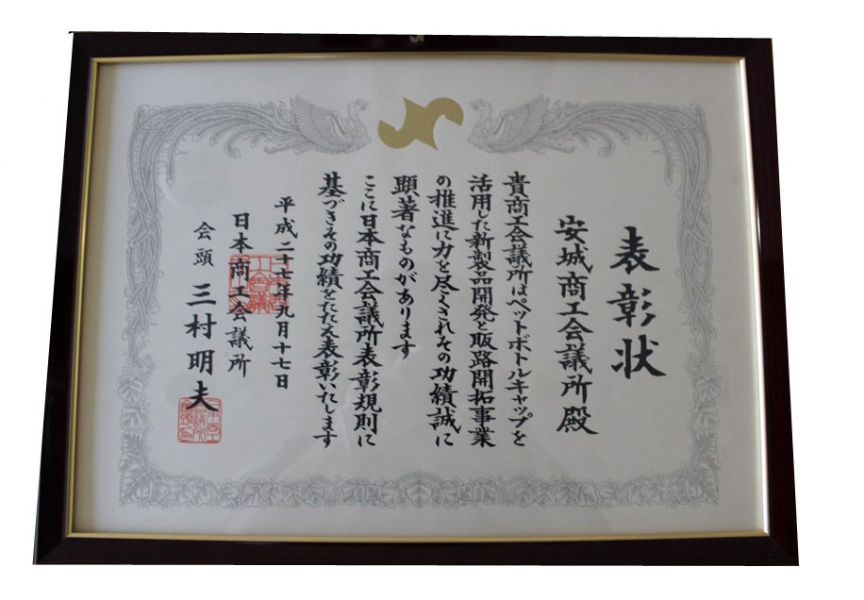 表彰状
安城商工会議所殿
貴商工会議所はペットボトルキャップを
活用した新製品開発と販路開拓事業
の推進に力を尽くされその功績誠に
顕著なものがあります
ここに日本商工会議所表彰規則に
基づきその功績をたたえ表彰いたします
平成二十七年九月十七日
日本商工会議所
会頭 三村明夫